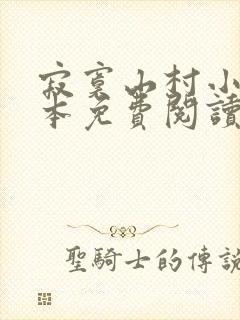 寂寞山村小
本免費閱讀
聖騎士的傳說